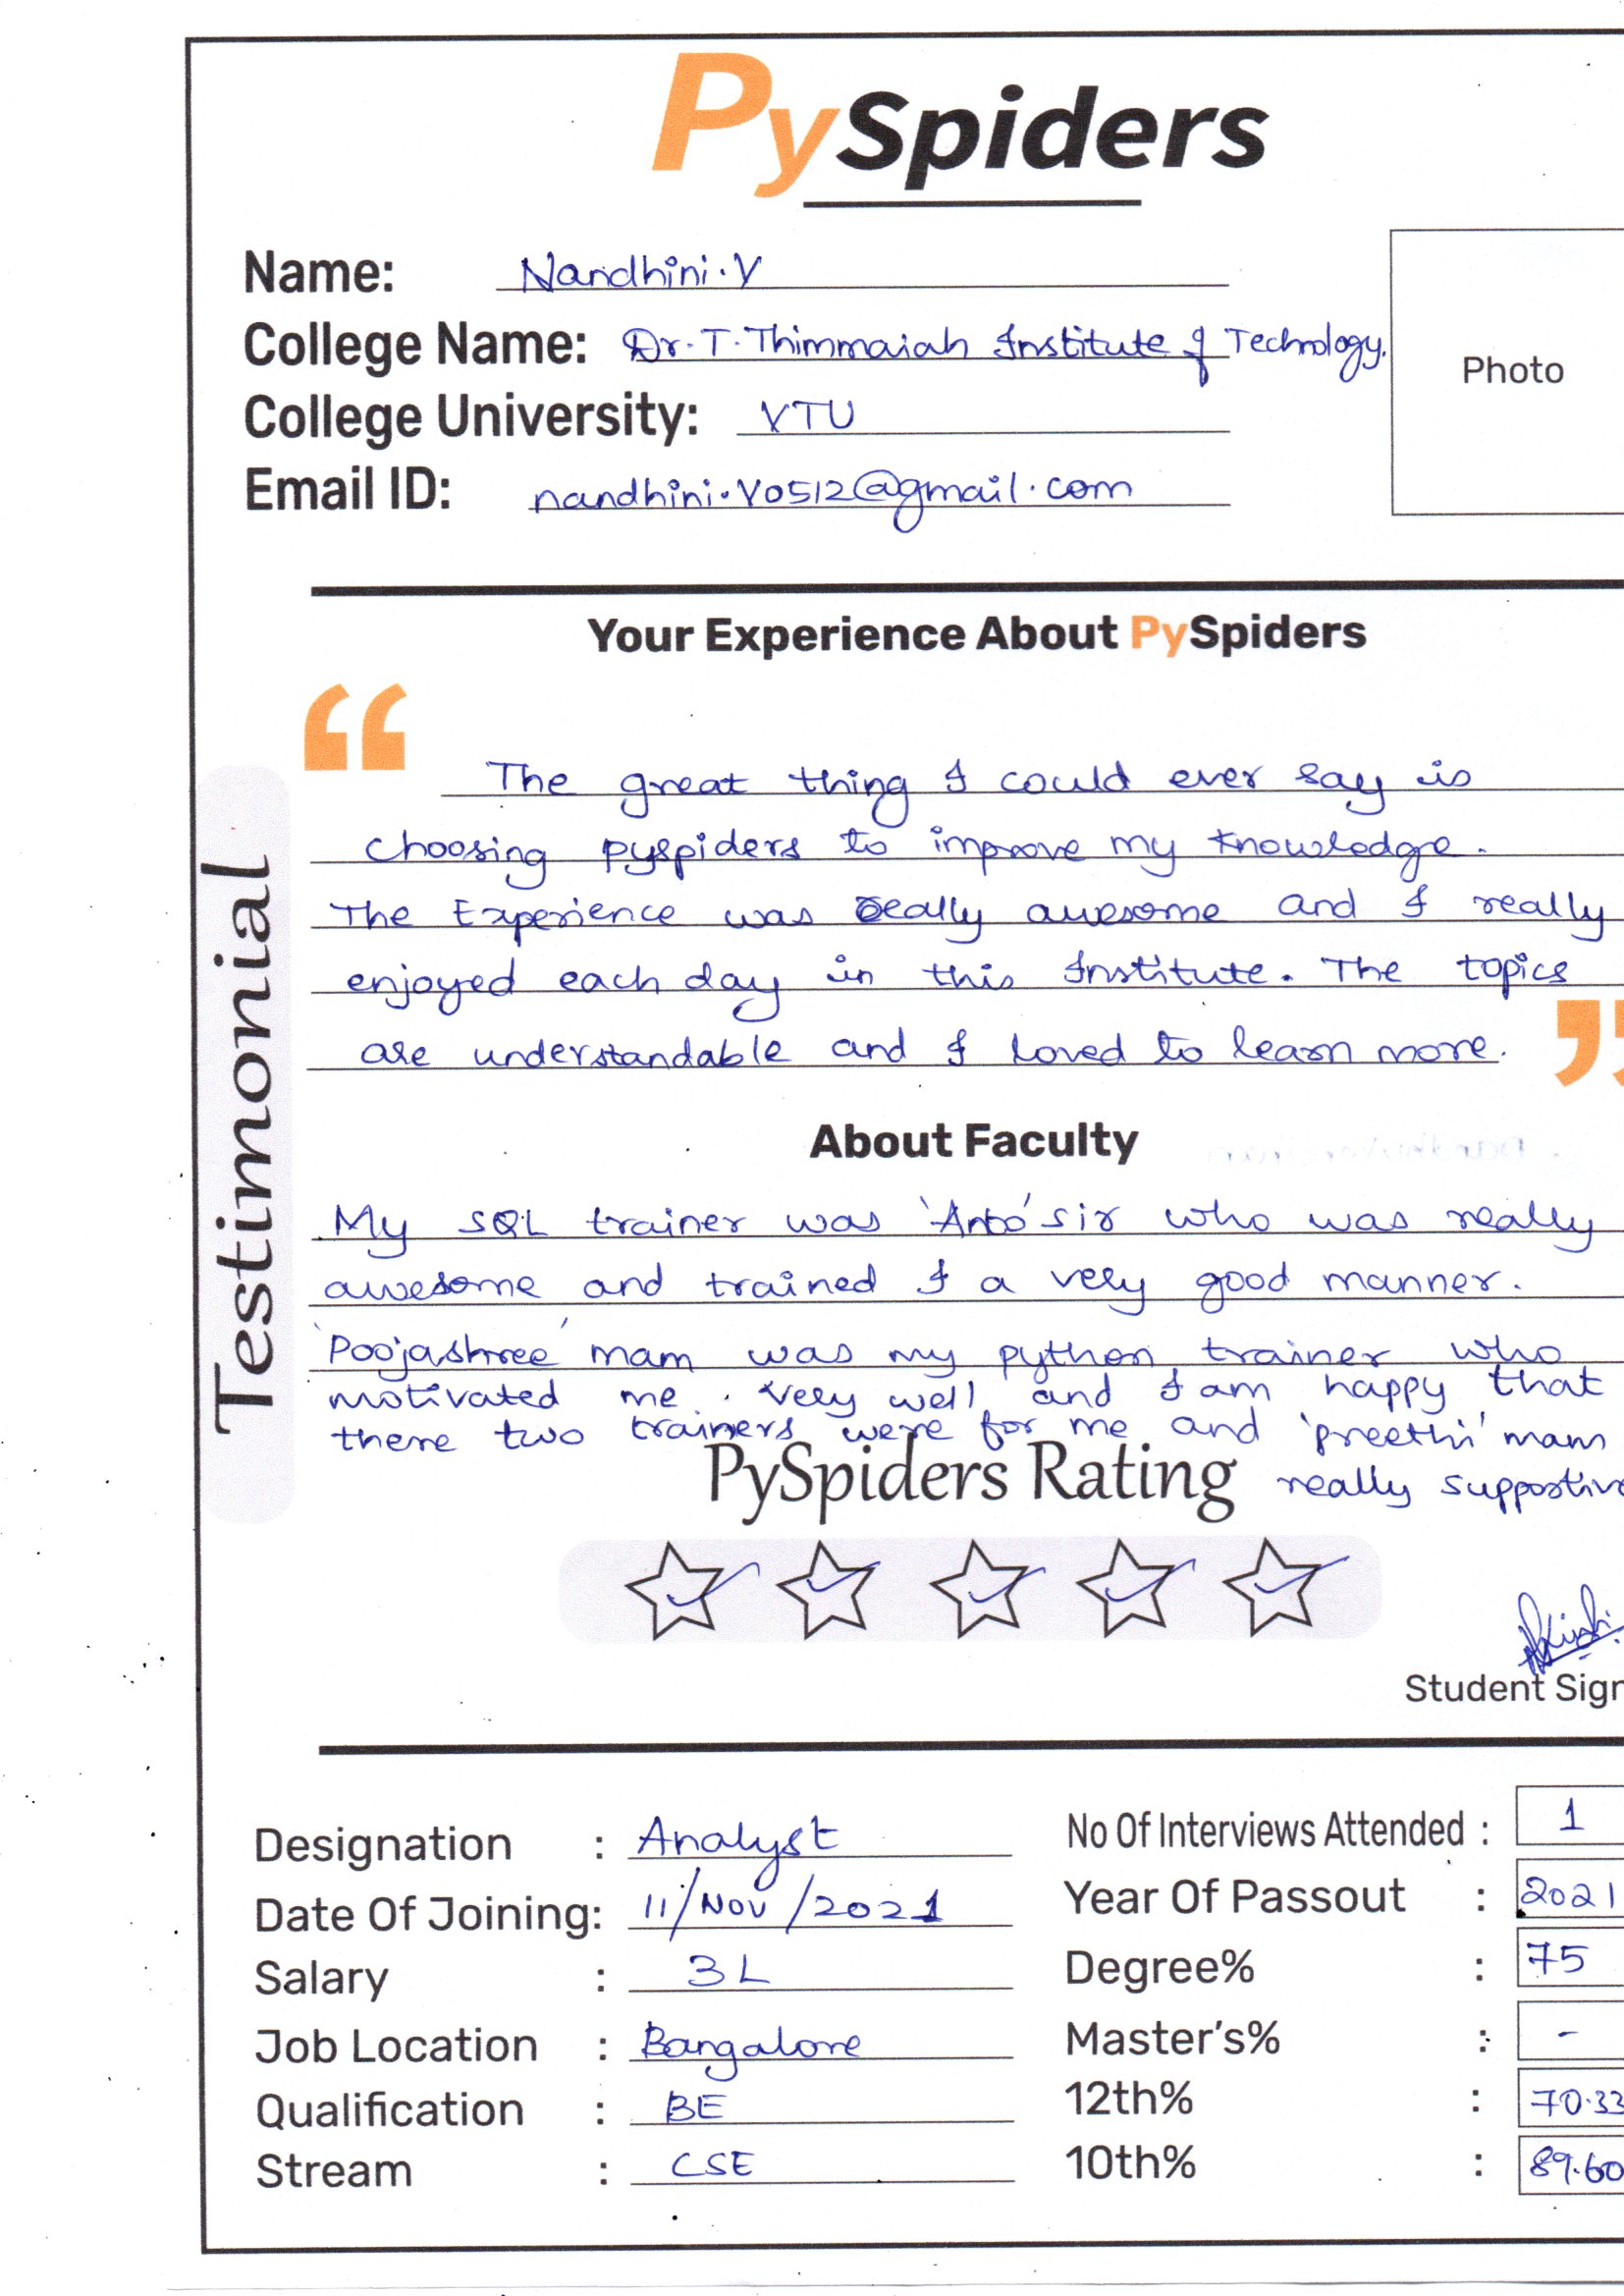 PySpiders
Name: Nandhini.V
College Name: Dr. T. Thimmaiah Institute of Technology.
Photo
College University: VTU
Email ID: nandhini.v0512@gmail.com
Your Experience About PySpiders
“
The great thing I could ever say is
choosing pyspiders to improve my knowledge.
The Experience was really awesome and I really
enjoyed each day in this Institute. The topics
are understandable and I loved to learn more.
”
Testimonial
About Faculty
My SQL trainer was 'Anto' sir who was really
awesome and trained I a very good manner.
'Poojashree' mam was my python trainer who
motivated me. Very well and I am happy that
there two trainers were for me and 'preethi' mam
really supportive
PySpiders Rating
Student Sign
Designation : Analyst
No Of Interviews Attended : 1
Date Of Joining: 11/Nov/2021
Year Of Passout : 2021
Salary : 3L
Degree% : 75
Job Location : Bangalore
Master's% : -
Qualification : BE
12th% : 70.33
Stream : CSE
10th% : 89.60